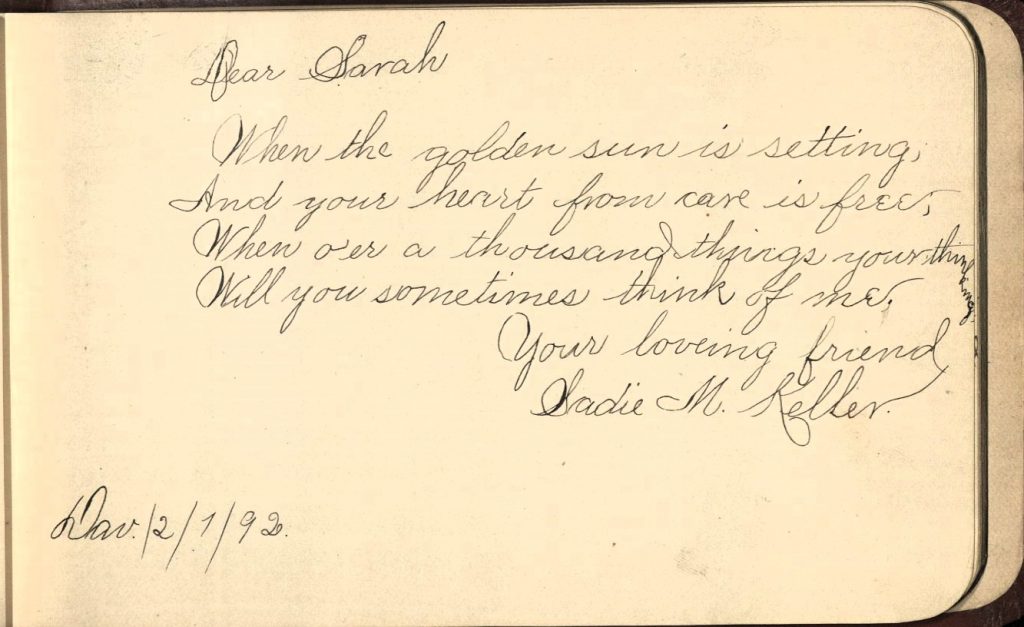 Dear Sarah
When the golden sun is setting,
And your heart from care is free,
When o'er a thousand things your thinking,
Will you sometimes think of me.
Your loveing friend
Sadie M. Keller.
Dav. /2/7/92.